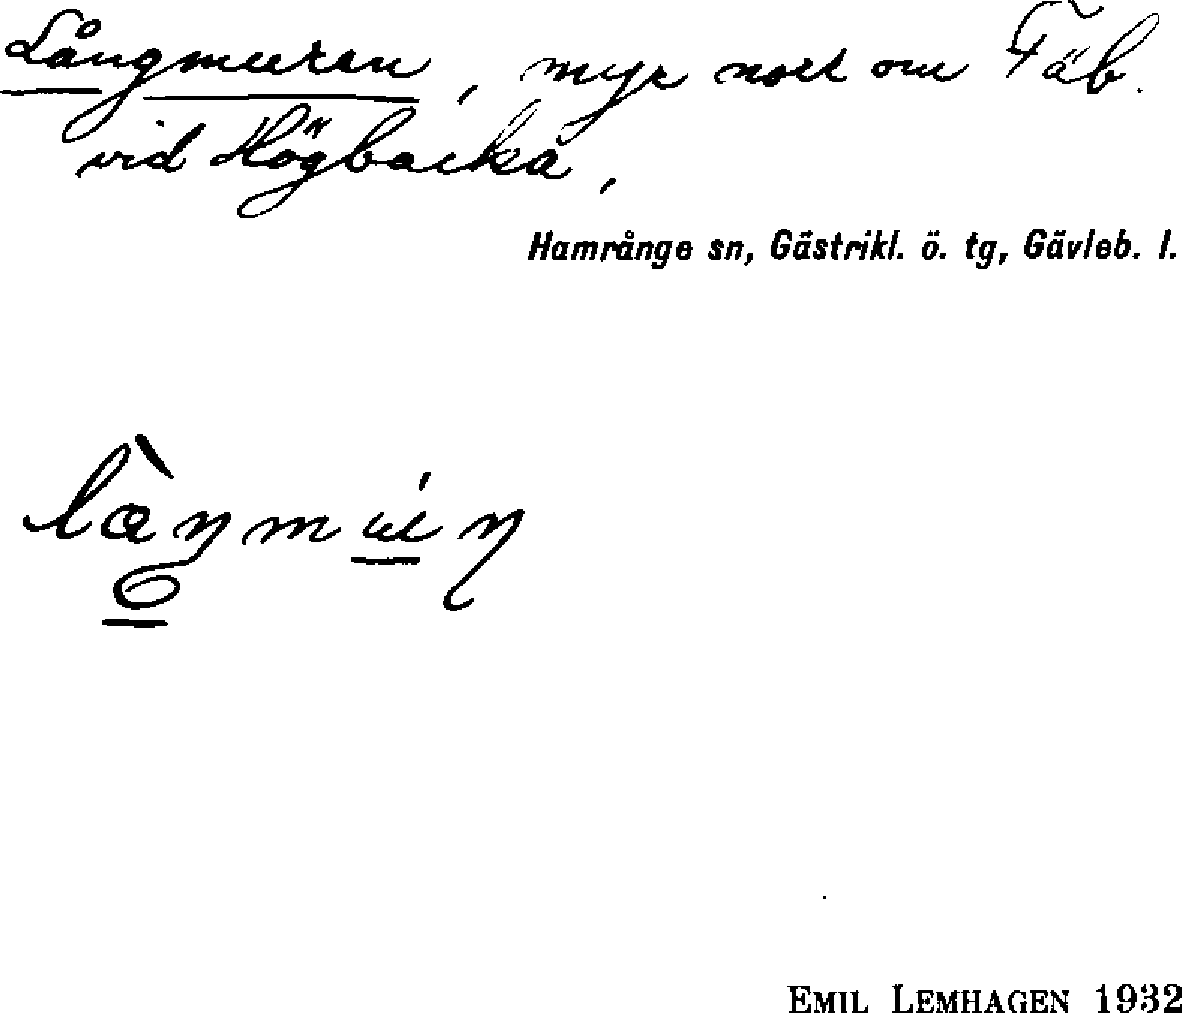 Långmuren, myr norr om Fäb.
vid Högbacka,
Hamrånge sn, Gästrikl. ö. tg, Gävleb. l.
EMIL LEMHAGEN 1932